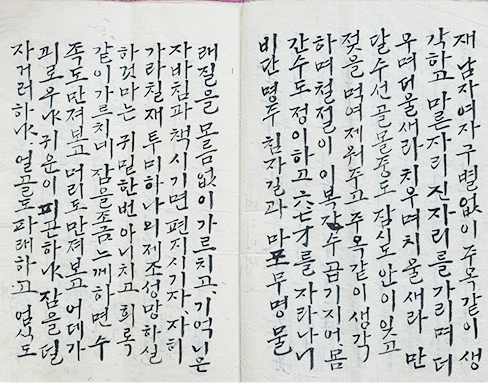 재 남자여자 구별 없이 주옥같이 생
각하고 마른자리 진자리를 가리며 더
우며 더울새라 치우며 치울새라 만
달수선 골몰중도 잠시도 안이 잊고
젖을 먹여 제워주고 주옥같이 생각
하며 철철이 이복갈수 곰기지어, 몸
간수도 정이하고 六七才를 자라나니
비단 명두 침자질과 마포무명 물
래질을 몰름없이 가르치고, 기억니은
자바침과 책시기면 편지시기자, 자히
가라칠재 투미하나 외제조성망하실
하럿마는 뀌밀한번 아니치고 희록
같이 가르치네 잠을 조금 느께하면 수
족도 만져보고 머리도 만져보고 어데가
피로우냐 귀운이 피곤하냐 잠을 덜
자거러하냐. 얼골도 파래하고 음식도